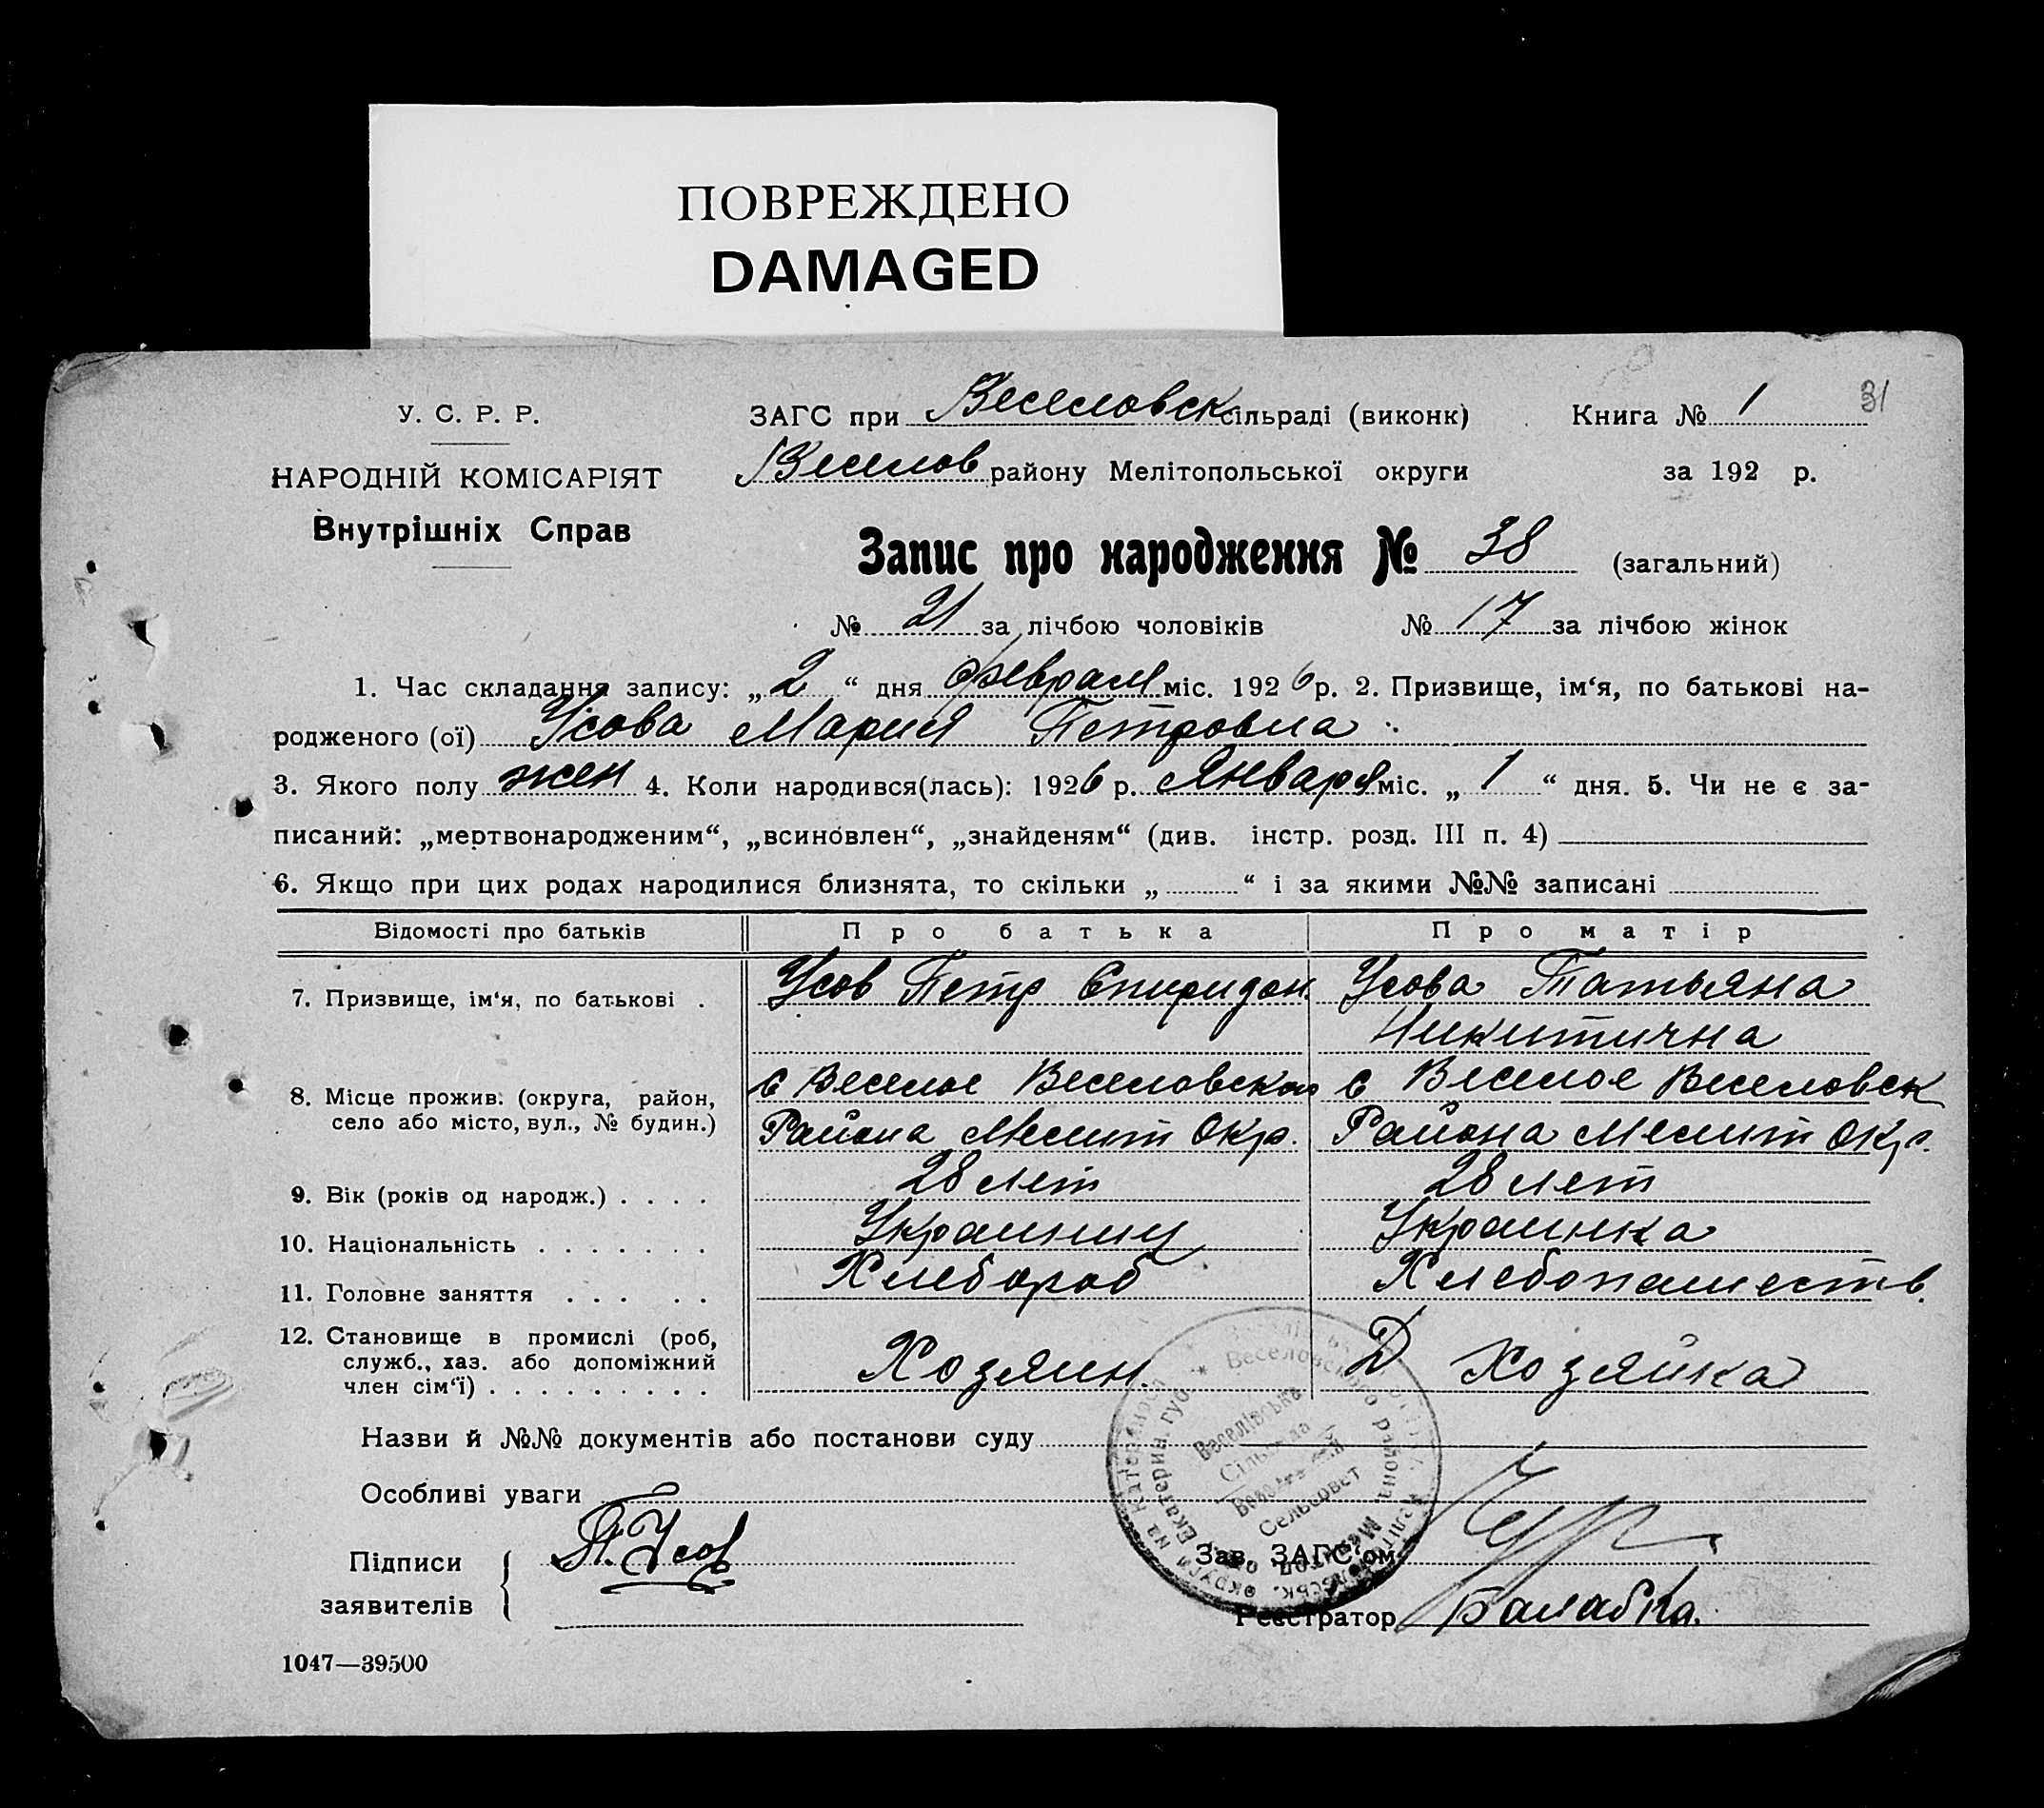 ПОВРЕЖДЕНО
DAMAGED
31
У. С. Р. Р.
ЗАГС при Веселовск сільраді (виконк) Книга № 1
НАРОДНІЙ КОМІСАРІЯТ
Веселов району Мелітопольської округи за 192 р.
Внутрішніх Справ
Запис про народження № 38 (загальний)
№ 21 за лічбою чоловіків № 17 за лічбою жінок
1. Час складання запису: „2“ дня февраля міс. 1926 р. 2. Призвище, ім‘я, по батькові на-
родженого (ої) Усова Мария Петровна
3. Якого полу жен 4. Коли народився(лась): 1926 р. Января міс. „1“ дня. 5. Чи не є за-
писаний: „мертвонародженим“, „всиновлен“, „знайденям“ (див. інстр. розд. III п. 4)
6. Якщо при цих родах народилися близнята, то скільки „ “ і за якими №№ записані
Відомості про батьків Про батька Про матір
7. Призвище, ім‘я, по батькові . Усов Петр Спиридон. Усова Татьяна
Никитична
8. Місце прожив: (округа, район, с Веселое Веселовского с Веселое Веселовск
село або місто, вул., № будин.) Района Мелит Окр. Района Мелит Окр.
9. Вік (років од народж.) . . . . 28 лет 28 лет
10. Національність . . . . . . . Украинец Украинка
11. Головне заняття . . . . . Хлебороб Хлебопашеств.
12. Становище в промислі (роб,
служб., хаз. або допоміжний Хозяин. Д Хозяйка
член сім‘ї) . . . . . . . . .
Назви й №№ документів або постанови суду
Особливі уваги
Підписи П. Усов
Зав. ЗАГС‘ом
заявителів
Реєстратор Балабка.
Веселівська
Сільрада
Сельсовет
1047—39500